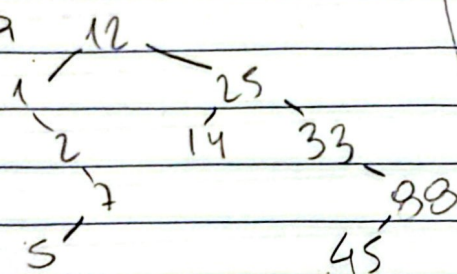 12
1 25
2 14 33
7 88
5 45